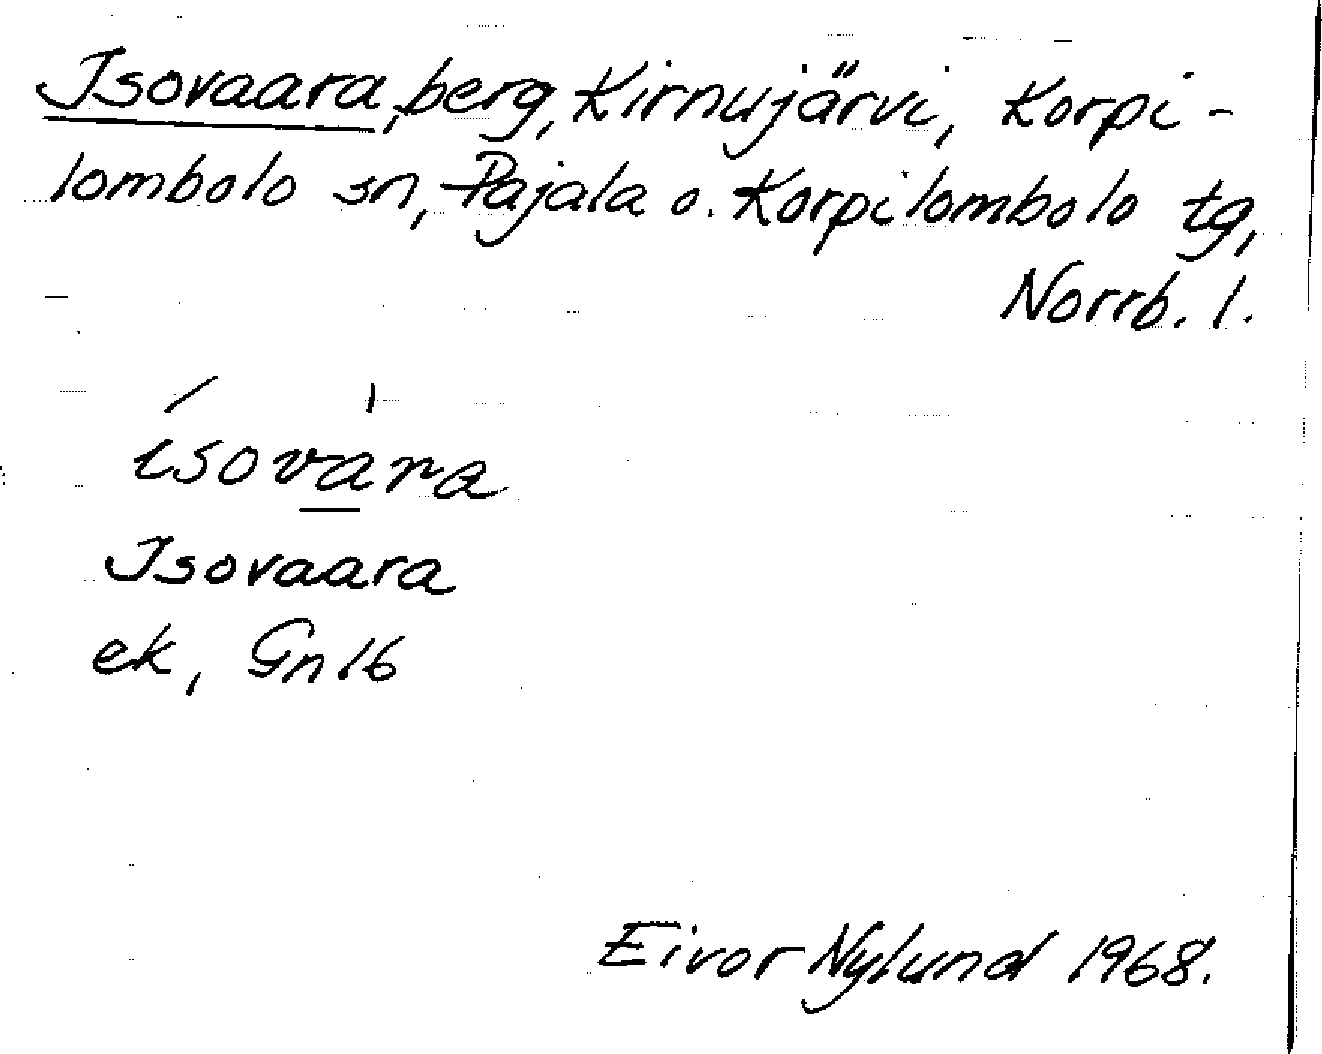 Isovaara, berg, Kirnujärvi, Korpi-
lombolo sn, Pajala o. Korpilombolo tg,
Norrb. l.
ísova̱ˈra
Isovaara
ek, Gn 16
Eivor Nylund 1968.